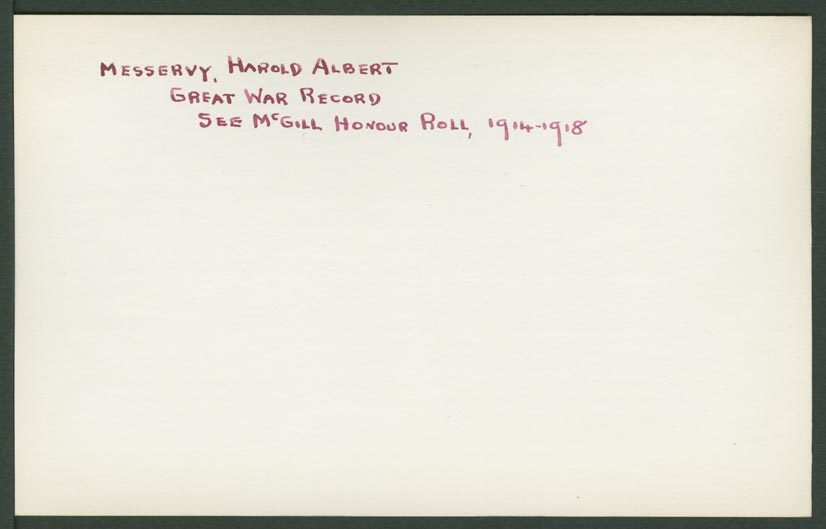 MESSERVY, HAROLD ALBERT
GREAT WAR RECORD
SEE McGILL HONOUR ROLL, 1914-1918